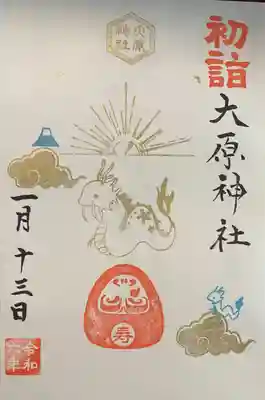 初詣
大原神社
大原
神社
一月十三日
寿
令和
六年